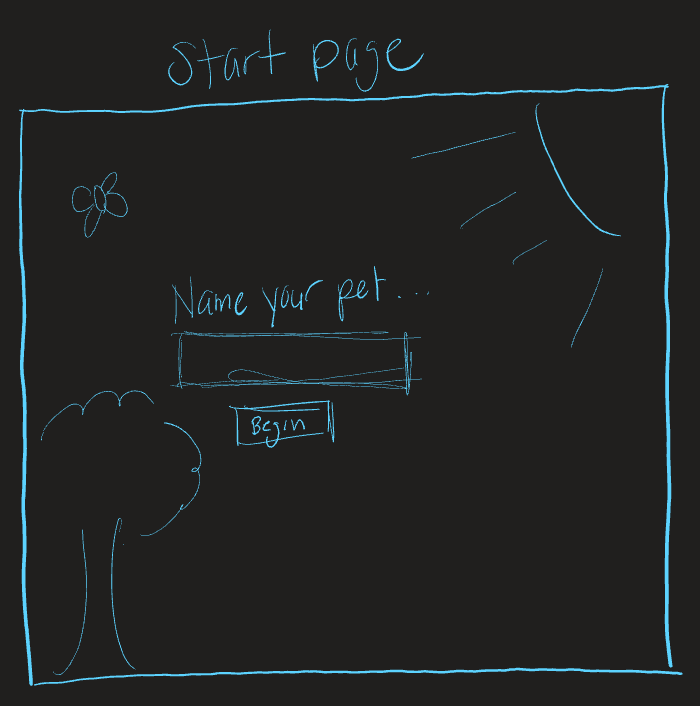 Start page
Name your pet...
Begin